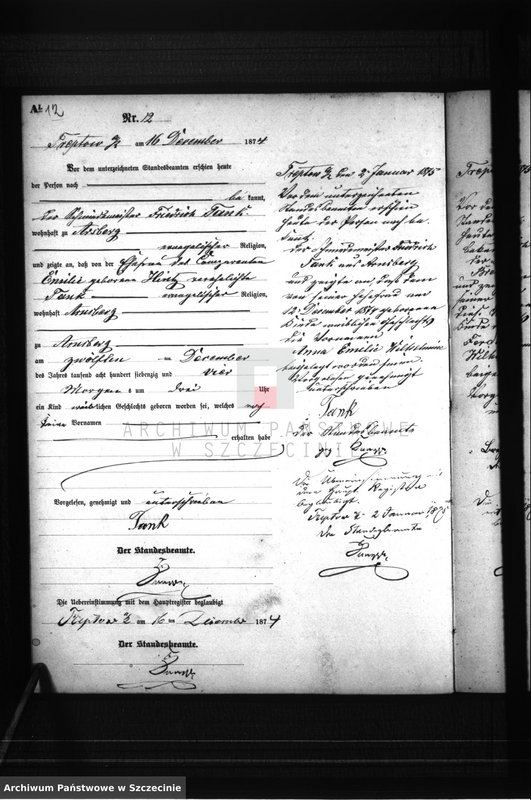 A 12
Nr. 12
Treptow a/R am 16 December 1874
Vor dem unterzeichneten Standesbeamten erschien heute
der Person nach
be kannt,
der Schmiedemeister Friedrich Tank
wohnhaft zu Arnsberg
evangelischer Religion,
und zeigte an, daß von der Ehefrau des Comparenten
Emilie geborene Hintz verehelichte
Tank evangelischer Religion,
wohnhaft Arnsberg
zu Arnsberg
am zwölften December
des Jahres tausend acht hundert siebenzig und vier
Morgens um drei Uhr
ein Kind weiblichen Geschlechts geboren worden sei, welches noch
keine Vornamen
erhalten habe
Vorgelesen, genehmigt und unterschrieben
Tank
Der Standesbeamte.
Die Uebereinstimmung mit dem Hauptregister beglaubigt
Treptow a/R am 16 ten December 1874
Der Standesbeamte.
Treptow a/R den 2 Januar 1875
Vor dem unterzeichneten
Standesbeamten erschien
heute der Person nach be
kannt,
der Schmiedemeister Friedrich
Tank aus Arnsberg
und zeigte an, daß dem
von seiner Ehefrau am
12 December 1874 geborenen
Kinde weiblichen Geschlechts
die Vornamen
Anna Emilie Wilhelmine
beigelegt worden seien
Vorgelesen genehmigt
unterschrieben
Tank
Der Standesbeamte
Die Übereinstimmung mit
dem Haupt Register
beglaubigt
Treptow a/R 2 Januar 1875
Der Standesbeamte
ARCHIWUM PAŃSTWOWE
W SZCZECINIE
Archiwum Państwowe w Szczecinie